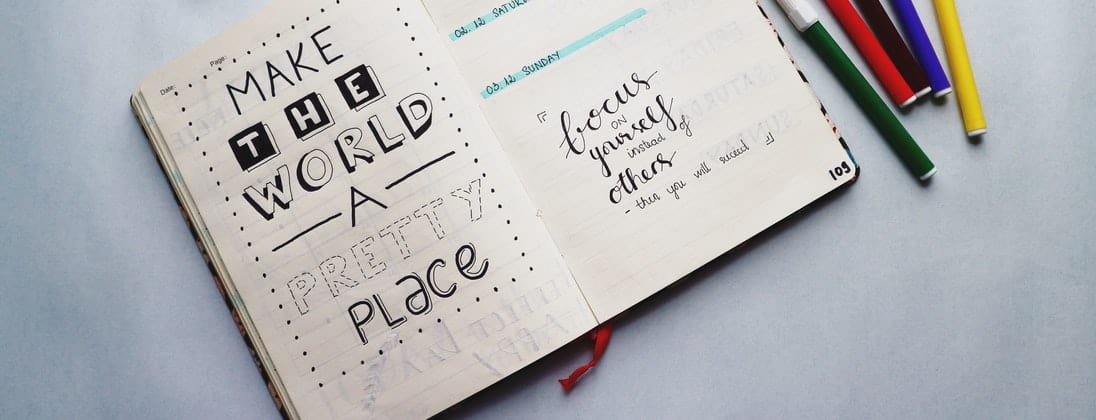 Date:
Page:
MAKE
THE
WORLD
A
PRETTY
PLace
02. 12 SATURD
03. 12 SUNDAY
focus
ON
yourself
instead of
others
- then you will succeed
109